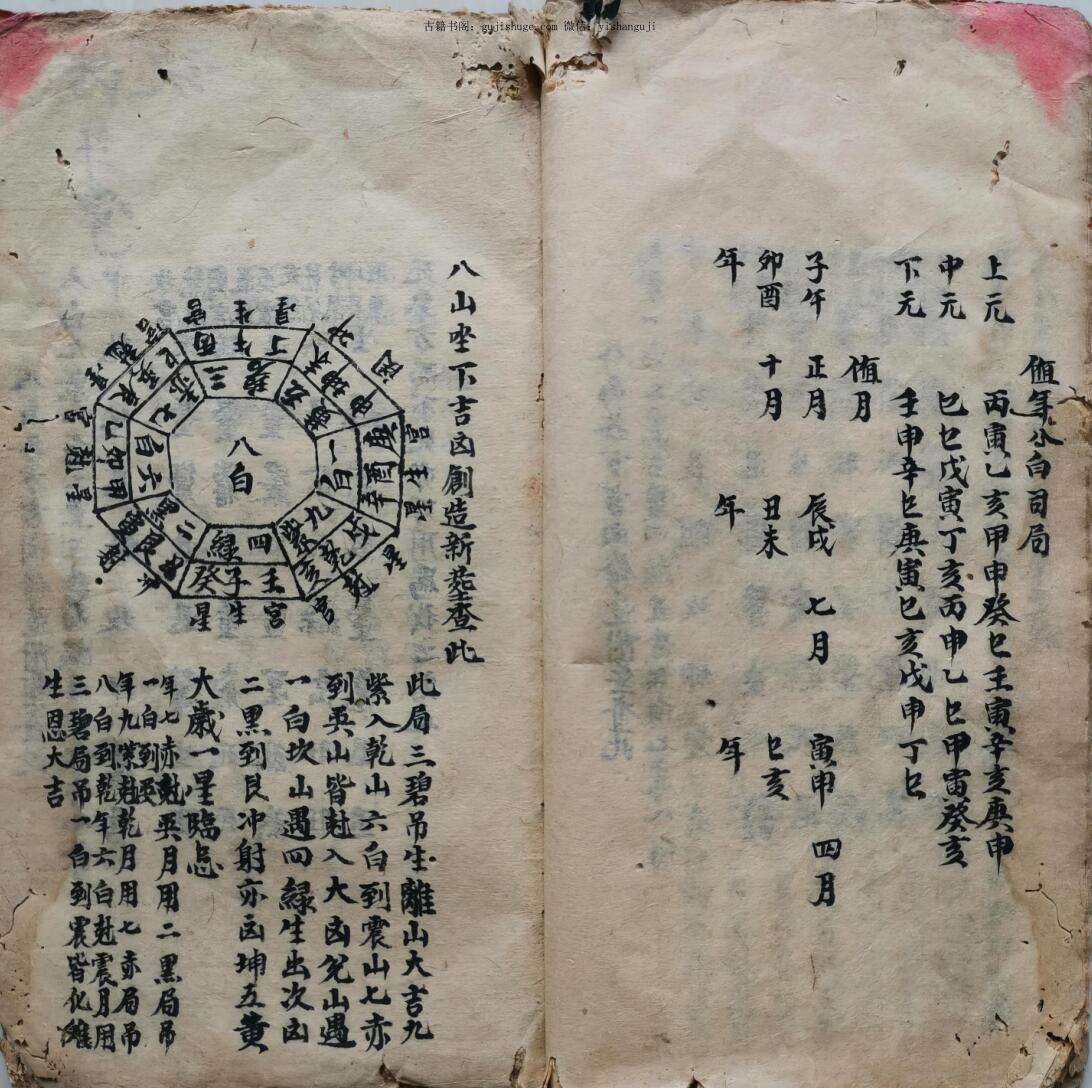 古籍书阁:gujishuge.com 微信:yishanguji
值年八白司局
上元 丙寅乙亥甲申癸巳壬寅辛亥庚申
中元 巳巳戊寅丁亥丙申乙巳甲寅癸亥
下元 壬申辛巳庚寅巳亥戊申丁巳
值月
子午 正月 辰戌 七月 寅申 四月
卯酉 十月 丑未 巳亥
年 年 年
八山坐下吉凶創造新塋查此
八白
三碧
一白
九紫
四緑
二黑
六白
七赤
丁午丙
庚酉辛
戌乾亥
壬子癸
甲卯乙
宮生星
此局三碧吊生離山大吉九
紫入乾山六白到震山七赤
到巽山皆尅入大凶兌山遇
一白坎山遇四緑生出次凶
二黑到艮冲射亦凶坤五黄
大歲一星臨忌
年七赤尅巽月用二黑局吊
一白到巽
年九紫尅乾月用七赤局吊
八白到乾年六白尅震月用
三碧局吊一白到震皆化難
生恩大吉